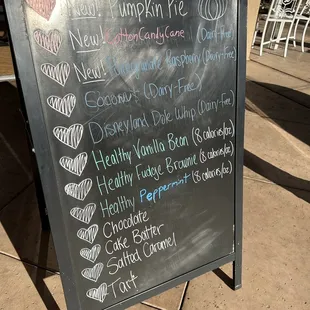 New! Pumpkin Pie
New! Cotten Candy Cane (Dairy-Free)
New! Pomegranate Raspberry (Dairy-Free)
Coconut (Dairy-Free)
Disneyland Dole Whip (Dairy-Free)
Healthy Vanilla Bean (8 calories/oz)
Healthy Fudge Brownie (8 calories/oz)
Healthy Peppermint (8 calories/oz)
Chocolate
Cake Batter
Salted Caramel
Tart